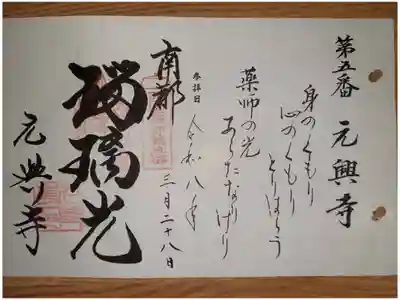 第五番 元興寺
身のくもり
心のくもり
とりはらう
薬師の光
あらたなりけり
参拝日
令和八年 三月二十八日
南都
瑠璃光
元興寺